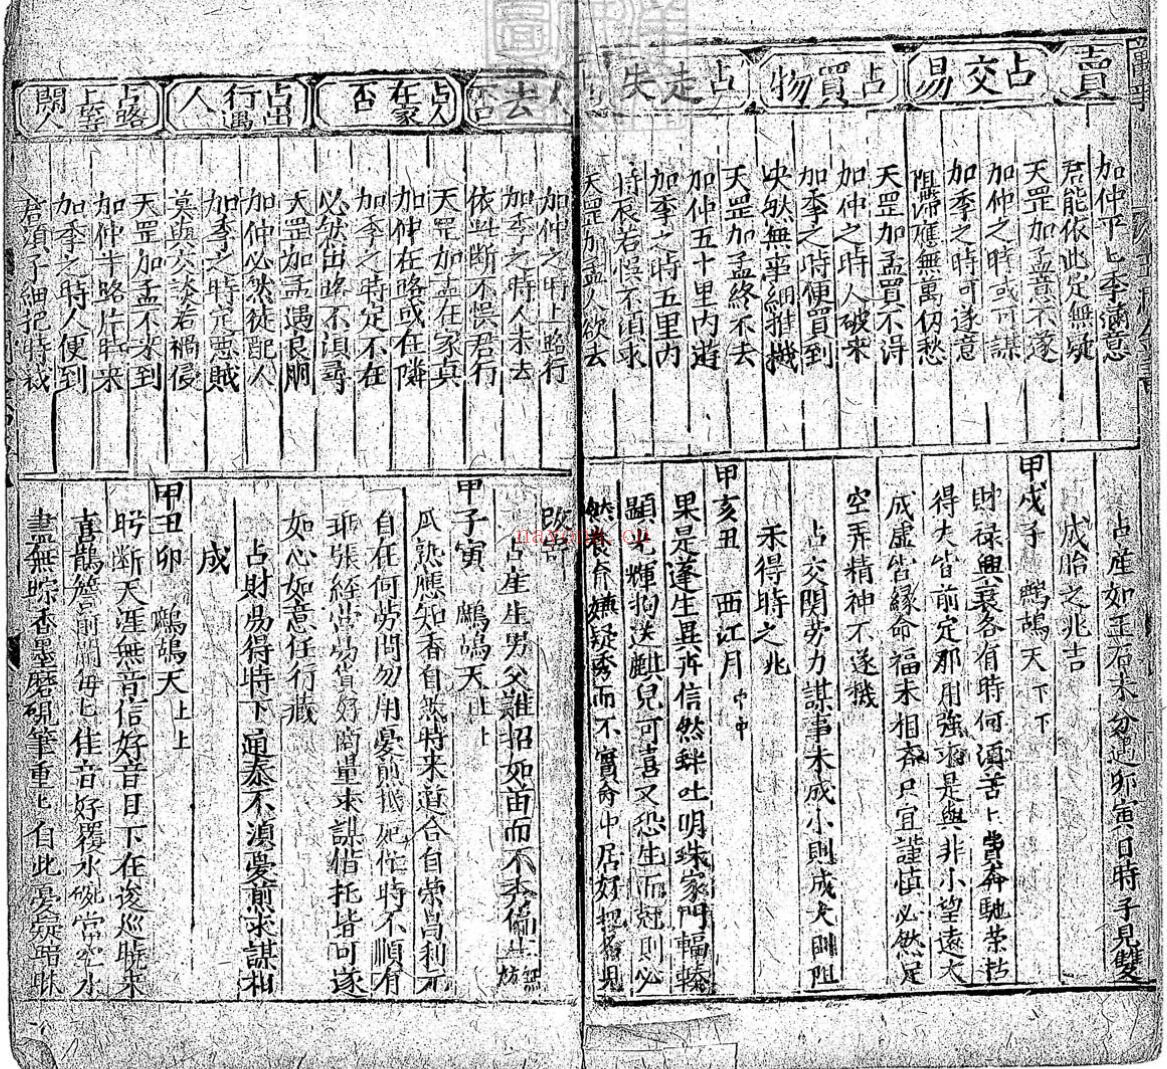 賣
占交易
占買物
占走失
加仲平匕季滿意
君能依此定無疑
天罡加孟意不遂
加仲之時或可謀
加季之時可遂意
阻滯應無萬仞愁
天罡加孟買不淂
如仲之時人破來
加季之時便買到
決然無事細推機
天罡加孟終不去
加仲五十里內遊
加季之時五里內
時辰若悞不須求
天罡加孟人欲去
占產如玉石未分定卯寅日時子見雙
成胎之兆吉
甲戌子 鷓鴣天下下
財禄興衰各有時何須苦匕賣奔馳荣枯
得失皆前定那用強求是與非小望遠大
成虛皆縁命福未相齐只宜謹慎必然是
空弄精神不遂機
占交関劳力謀事未成小則成大則阻
未得時之兆
甲亥丑 西江月中中
果是蓬生異卉信然蚌吐明珠家門輻輳
顕光輝抱送麒兒可喜又恐生而
嫌疑秀而不實命中居好
去
占人在家否
占出行遇人
占路上望閑人
加仲之時上路行
加季之時人未去
依此断不悞君行
天罡加孟在家真
加仲在路或在隣
加季之時定不在
必然出路不須尋
天罡加孟遇良朋
加仲必然徒配人
加季之時定惡賊
莫與交談若禍侵
天罡加孟不來到
加仲半路片時來
加季之時人便到
君須子細把時裁
占産生男父難招如苗而不秀偏生無妨
甲子寅 鷓鴣天上上
瓜熟應知香自然時来道合自荣昌利不
自在何劳問勿用憂煎忙時不順有
乖張經营易貨好商量求謀偕托皆可遂
如心如意任行藏
占財易得時下通泰不湏憂煎求謀相
成
甲丑卯 鷓鴣天上上
盻断天涯無音信好音目下在逡巡暁來
喜鵲簷前閙每匕佳音好覆水碗当空水
盡無踪香墨磨硯筆重匕自此憂疑暗